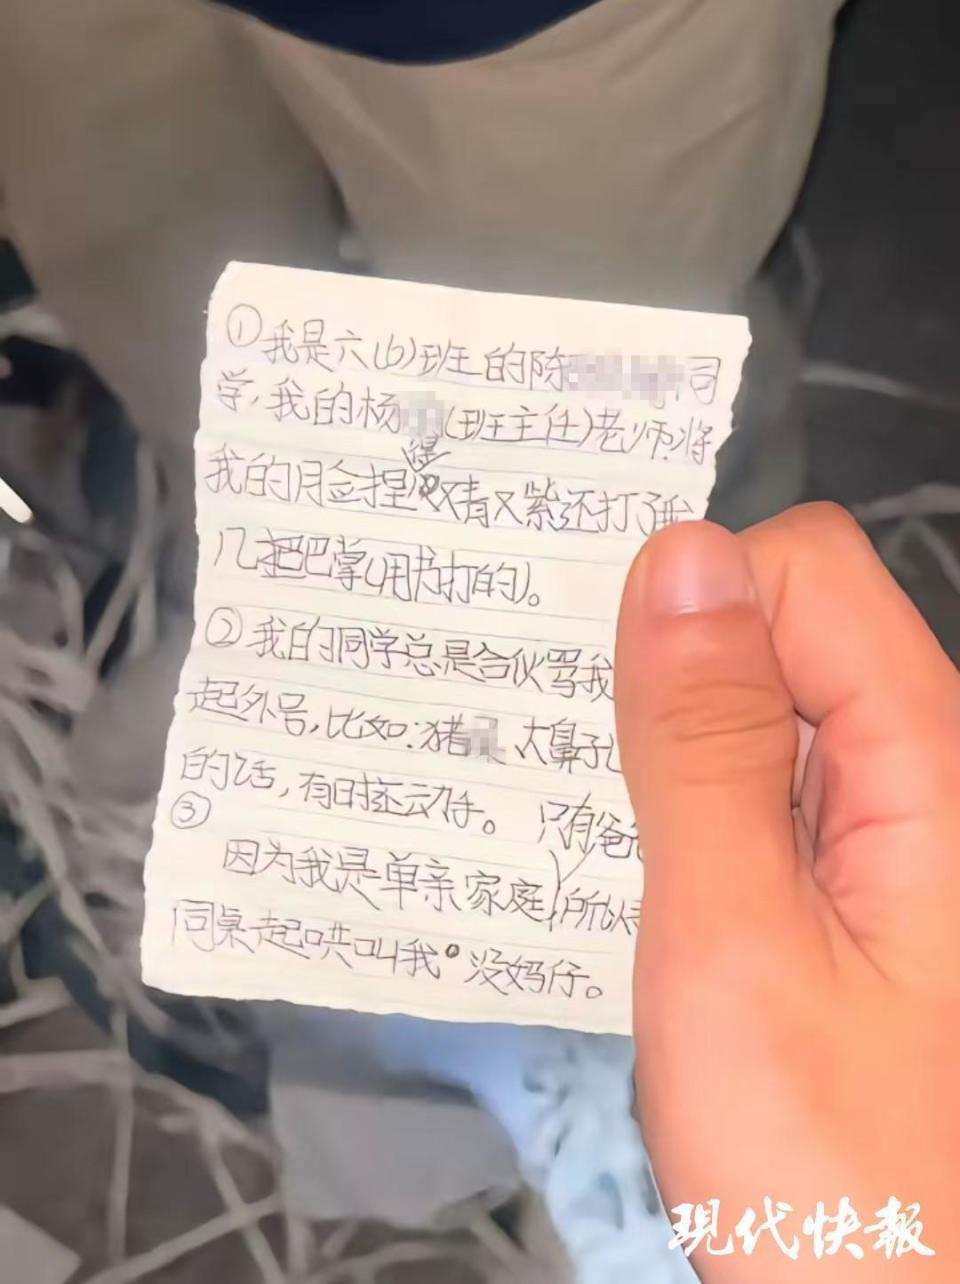 ①我是六(6)班的陈 同
学,我的杨 (班主任)老师.将
我的脸捏得又青又紫还打了我
几把巴掌(用书打的)。
②我的同学总是合伙骂我
起外号,比如:猪 、大鼻子
的话,有时还动手。 只有爸爸
③
因为我是单亲家庭,所以
同桌起哄叫我“没妈仔。
现代快報